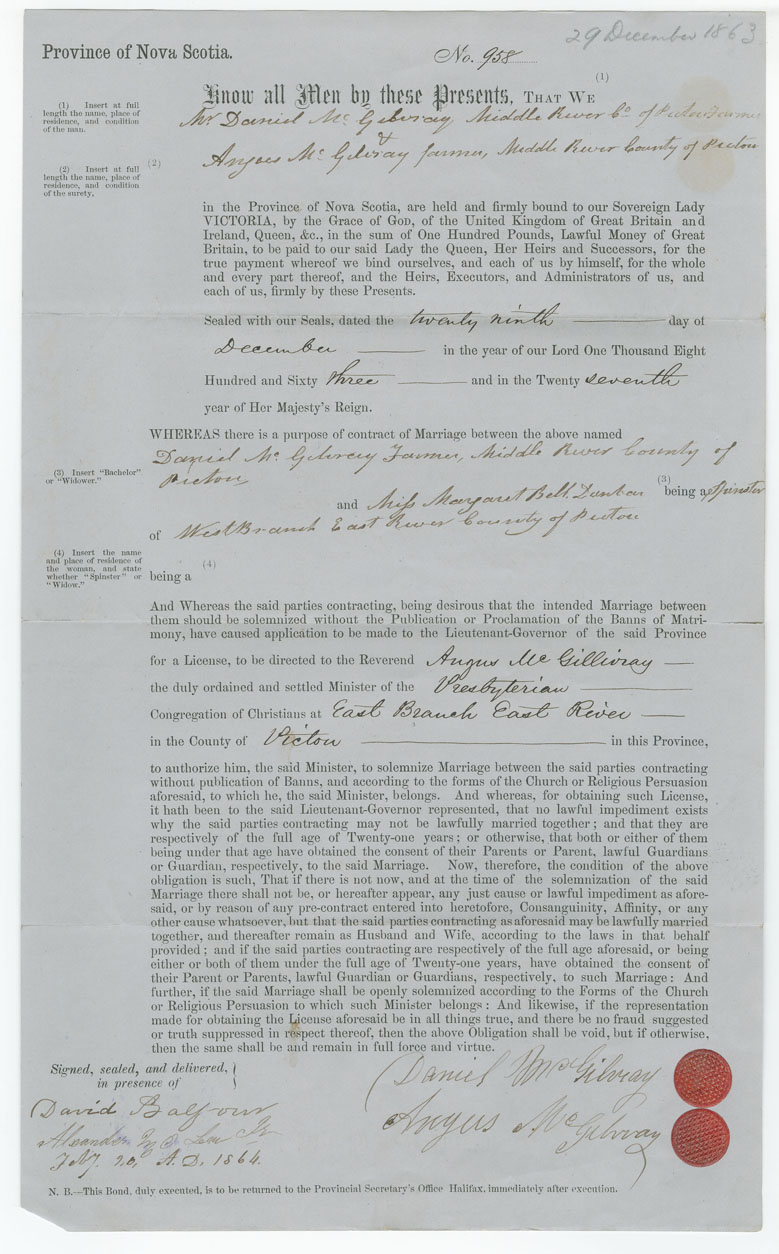 29 December 1863
Province of Nova Scotia.
No. 958
(1)
Know all Men by these Presents, THAT WE
(1) Insert at full length the name, place of residence, and condition of the man.
Mr Daniel McGilvray Middle River Co of Pictou Farmer
&
(2) Insert at full length the name, place of residence, and condition of the surety.
(2)
Angus McGilvray farmer, Middle River County of Pictou
in the Province of Nova Scotia, are held and firmly bound to our Sovereign Lady
VICTORIA, by the Grace of GOD, of the United Kingdom of Great Britain and
Ireland, Queen, &c., in the sum of One Hundred Pounds, Lawful Money of Great
Britain, to be paid to our said Lady the Queen, Her Heirs and Successors, for the
true payment whereof we bind ourselves, and each of us by himself, for the whole
and every part thereof, and the Heirs, Executors, and Administrators of us, and
each of us, firmly by these Presents.
Sealed with our Seals, dated the twenty ninth day of
December in the year of our Lord One Thousand Eight
Hundred and Sixty three and in the Twenty seventh
year of Her Majesty's Reign.
WHEREAS there is a purpose of contract of Marriage between the above named
Daniel McGilvray Farmer, Middle River County of
Pictou
(3) Insert "Bachelor" or "Widower."
(3)
and Miss Margaret Bell Dunbar being a Spinster
of West Branch East River County of Pictou
(4) Insert the name and place of residence of the woman, and state whether "Spinster" or "Widow."
(4)
being a
And Whereas the said parties contracting, being desirous that the intended Marriage between
them should be solemnized without the Publication or Proclamation of the Banns of Matri-
mony, have caused application to be made to the Lieutenant-Governor of the said Province
for a License, to be directed to the Reverend Angus McGillivray
the duly ordained and settled Minister of the Presbyterian
Congregation of Christians at East Branch East River
in the County of Pictou in this Province,
to authorize him, the said Minister, to solemnize Marriage between the said parties contracting
without publication of Banns, and according to the forms of the Church or Religious Persuasion
aforesaid, to which he, the said Minister, belongs. And whereas, for obtaining such License,
it hath been to the said Lieutenant-Governor represented, that no lawful impediment exists
why the said parties contracting may not be lawfully married together; and that they are
respectively of the full age of Twenty-one years; or otherwise, that both or either of them
being under that age have obtained the consent of their Parents or Parent, lawful Guardians
or Guardian, respectively, to the said Marriage. Now, therefore, the condition of the above
obligation is such, That if there is not now, and at the time of the solemnization of the said
Marriage there shall not be, or hereafter appear, any just cause or lawful impediment as afore-
said, or by reason of any pre-contract entered into heretofore, Consanguinity, Affinity, or any
other cause whatsoever, but that the said parties contracting as aforesaid may be lawfully married
together, and thereafter remain as Husband and Wife, according to the laws in that behalf
provided; and if the said parties contracting are respectively of the full age aforesaid, or being
either or both of them under the full age of Twenty-one years, have obtained the consent of
their Parent or Parents, lawful Guardian or Guardians, respectively, to such Marriage: And
further, if the said Marriage shall be openly solemnized according to the Forms of the Church
or Religious Persuasion to which such Minister belongs: And likewise, if the representation
made for obtaining the License aforesaid be in all things true, and there be no fraud suggested
or truth suppressed in respect thereof, then the above Obligation shall be void, but if otherwise,
then the same shall be and remain in full force and virtue.
Signed, sealed, and delivered,
in presence of
Daniel McGilvray
David Balfour
Angus McGilvray
Alexander
20, A.D. 1864.
N. B.—This Bond, duly executed, is to be returned to the Provincial Secretary's Office Halifax, immediately after execution.